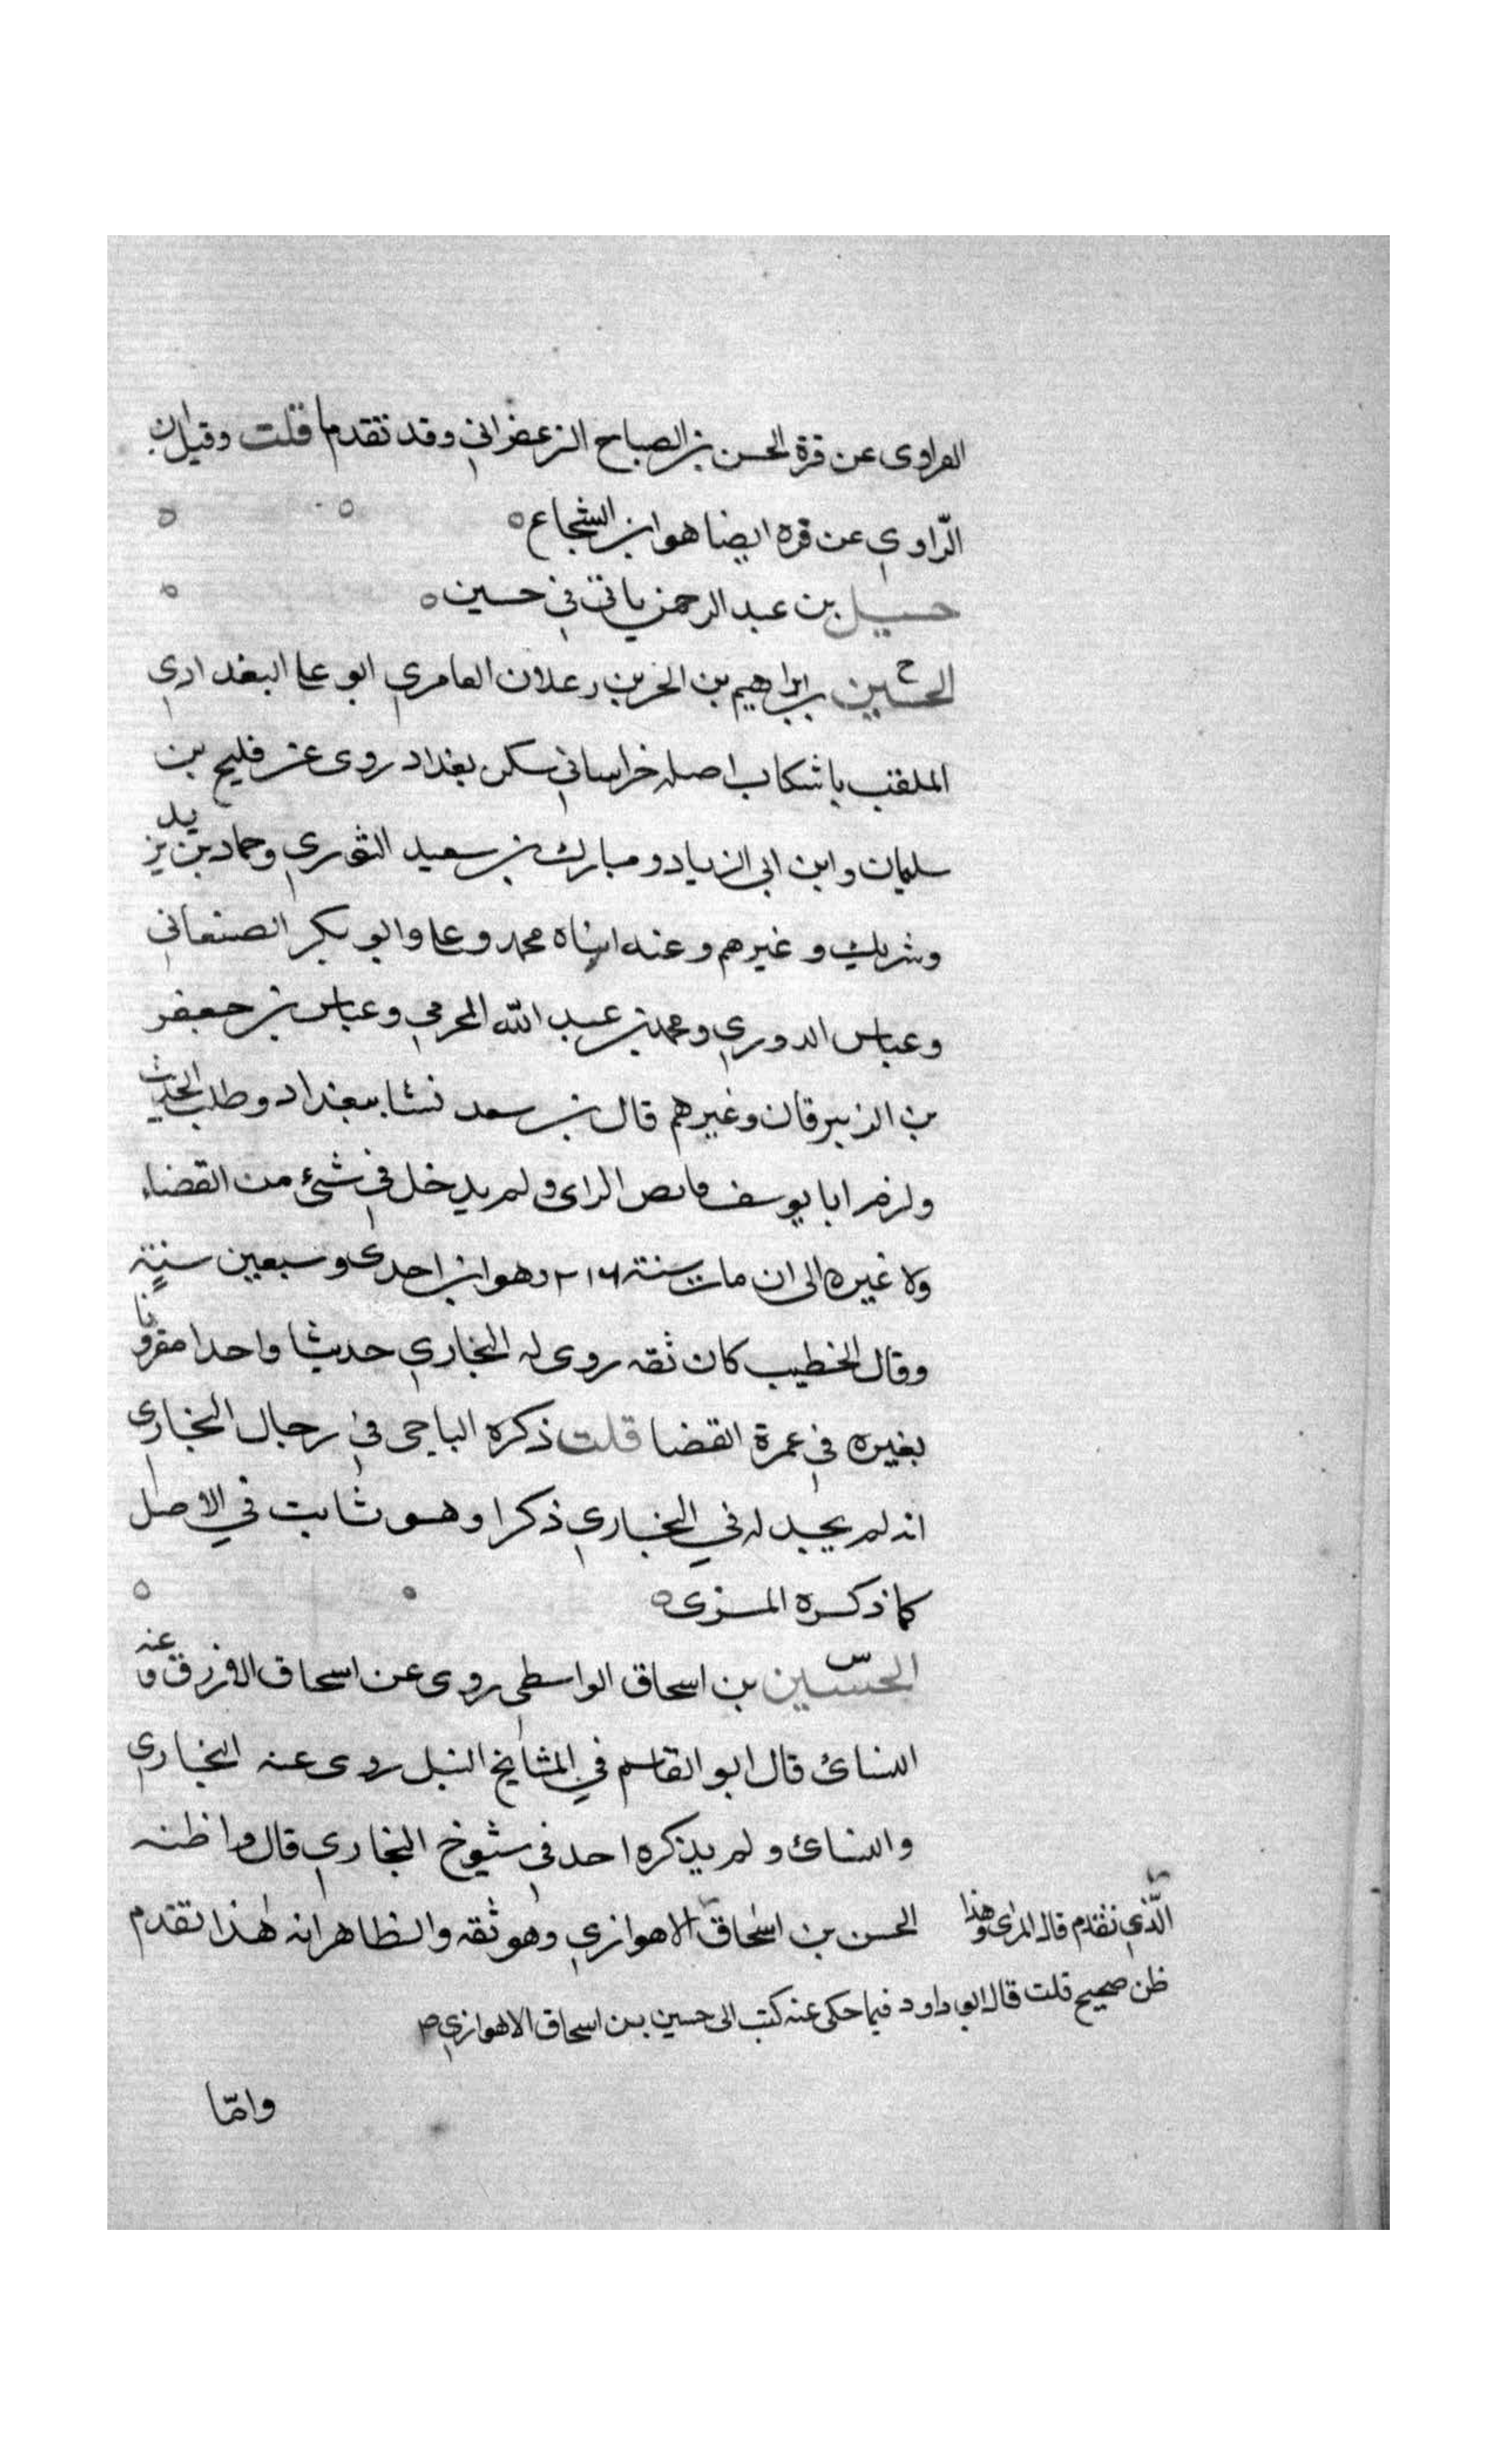 الراوى عن قرة الحسن بن الصباح الزعفراني وقد تقدم ما قلت وقيل ان
الرّاوي عن قره ايضا هو ابن الشجاع ه
حسيل بن عبد الرحمن ياتي في حسين ه
الحسين بن ابراهيم بن الحر بن زعلان العامري ابو على البغدادي
الملقب باشكاب اصله خراساني سكن بغداد روى عن فليح بن
سليمان وابن ابي الزياد ومبارك بن سعيد الثوري وحماد بن يزيد
وشريك وغيرهم وعنه ابناه محمد وعلى وابو بكر الصنعاني
وعباس الدوري ومحمد بن عبد الله المخرمي وعباس بن جعفر
بن الزبرقان وغيرهم قال بن سعد نشا ببغداد وطلب الحديث
ولزم ابا يوسف الراى ولم يدخل في شئ من القضاء
ولا غيره الى ان مات سنة ٢١٦ وهو ابن احدى وسبعين سنة
وقال الخطيب كان ثقه روى له البخاري حديثا واحدا مقرونا
بغيره في عمرة القضا قلت ذكره الباجى في رجال البخارى
انه لم يجد له في البخاري ذكرا وهو ثابت في الاصل
كما ذكره المزى ه
الحسين بن اسحاق الواسطى روى عن اسحاق الازرق وعنه
النسائ قال ابو القاسم في المشايخ النبل روى عنه البخاري
والنسائ ولم يذكره احد في شيوخ البخاري قال واظنه
الحسن بن اسحاق الاهوازي وهو ثقه والظاهر انه هذا تقدم
الّذي تقدم قال المزى وهذا
ظن صحيح قلت قال ابو داود فيما حكى عنه كتب الى حسين بن اسحاق الاهوازي
وامّا